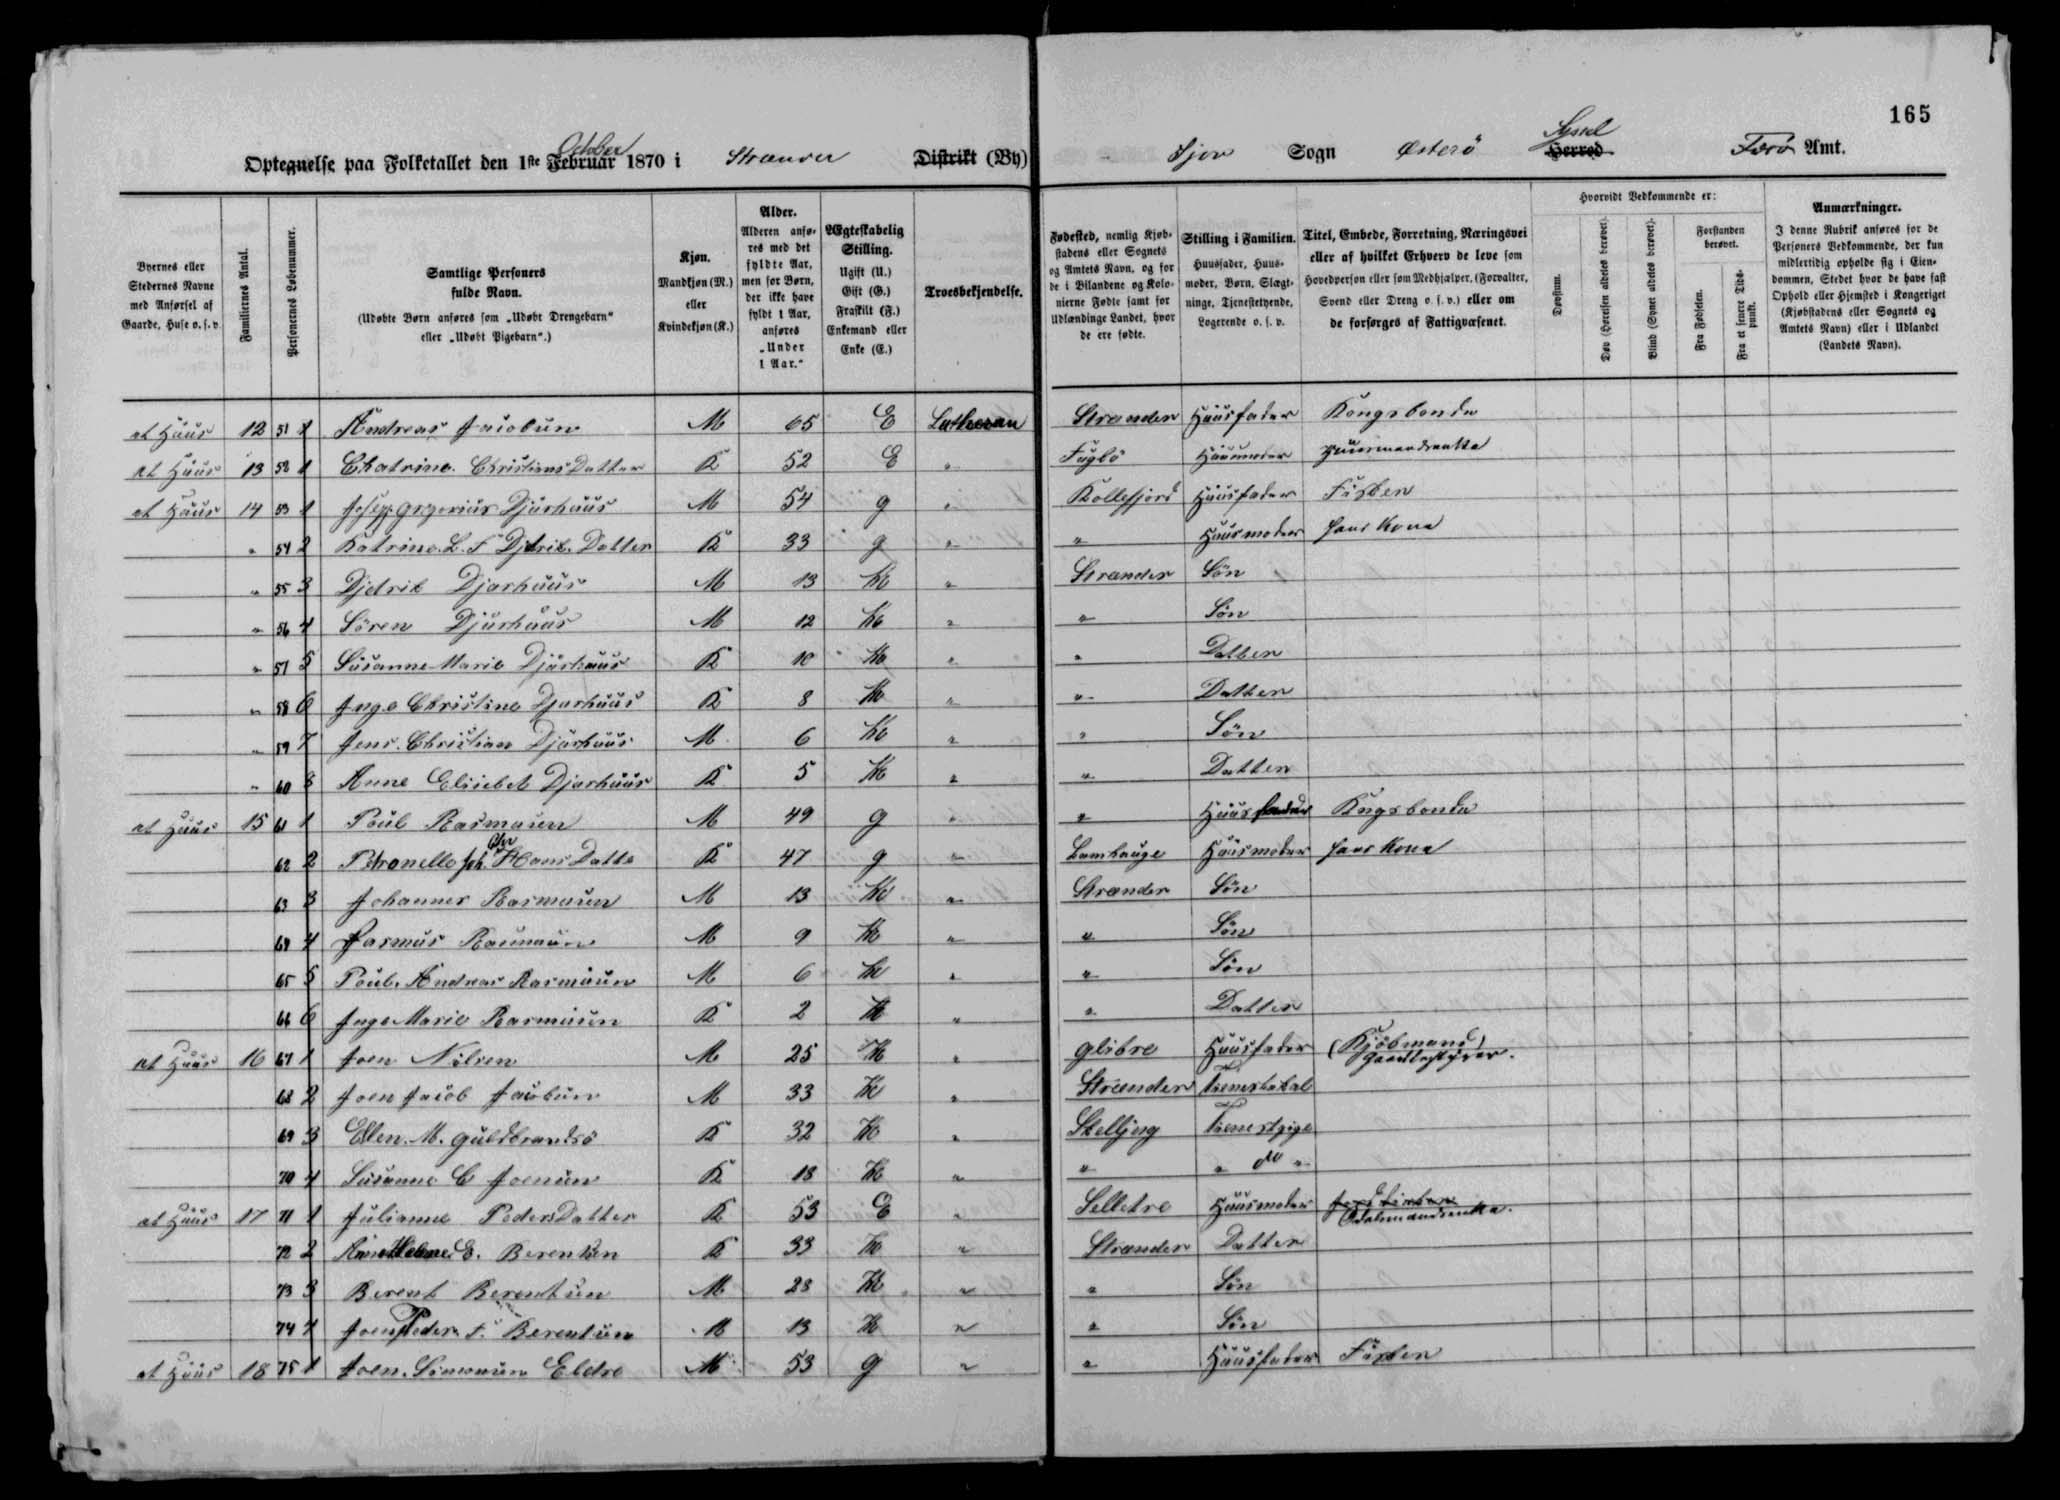 165
Optegnelse paa Folketallet den 1ste Februar October 1870 i Strænder Distrikt (By) Sjov Sogn Østerö Herred Syssel Færø Amt.
Byernes eller Stedernes Navne med Anførsel af Gaarde, Huse o. s. v.
Familiernes Antal.
Personernes Løbenummer.
Samtlige Personers fulde Navn.
(Udøbte Børn anføres som „Udøbt Drengebarn“ eller „Udøbt Pigebarn“.)
Kjøn.
Mandkjøn (M.) eller Kvindekjøn (K.)
Alder.
Alderen anføres med det fyldte Aar, men for Børn, der ikke have fyldt 1 Aar, anføres „Under 1 Aar.“
Ægteskabelig Stilling.
Ugift (U.) Gift (G.) Fraskilt (F.) Enkemand eller Enke (E.)
Troesbekjendelse.
Fødested, nemlig Kjøbstadens eller Sognets og Amtets Navn, og for de i Bilandene og Kolonierne Fødte samt for Udlændinge Landet, hvor de ere fødte.
Stilling i Familien.
Huusfader, Huusmoder, Børn, Slægtninge, Tjenestetyende, Logerende o. s. v.
Titel, Embede, Forretning, Næringsvei eller af hvilket Erhverv de leve som Hovedperson eller som Medhjælper, (Forvalter, Svend eller Dreng o. s. v.) eller om de forsørges af Fattigvæsenet.
Hvorvidt Vedkommende er:
Døvstum.
Døv (Hørelsen aldeles berøvet).
Blind (Synet aldeles berøvet).
Forstanden berøvet.
Fra Fødselen.
Fra et senere Tidspunkt.
Anmærkninger.
I denne Rubrik anføres for de Personers Vedkommende, der kun midlertidig opholde sig i Eiendommen, Stedet hvor de have fast Ophold eller Hjemsted i Kongeriget (Kjøbstadens eller Sognets og Amtets Navn) eller i Udlandet (Landets Navn).
at Huus 12 51 1 Andreas Jacobsen M 65 E Lutheran Strænder Huusfader Kongsbonde
at Huus 13 52 1 Chatrine Christians Datter K 52 E " Fuglö Huusmoder Huusmandsenke
at Huus 14 53 1 Joseph Gregorius Djurhuus M 54 g " Kollefjord Huusfader Fisker
" 54 2 Katrine L. F. Djdrik Datter K 33 g " " Huusmoder hans Kone
" 55 3 Djdrik Djurhuus M 13 U " Strænder Sön
" 56 4 Sören Djurhuus M 12 U " " Sön
" 57 5 Susanne Marie Djurhuus K 10 U " " Datter
" 58 6 Inge Christine Djurhuus K 8 U " " Datter
" 59 7 Jens Christian Djurhuus M 6 U " " Sön
" 60 8 Anne Elisebet Djurhuus K 5 U " " Datter
at Huus 15 61 1 Poul Rasmusen M 49 g " " Huusfader Kngsbonde
62 2 Petronelle Hans Datte K 47 g " Lamhauge Huusmoder hans Kone
63 3 Johannes Rasmusen M 13 U " Strænder Sön
64 4 Rasmus Rasmusen M 9 U " " Sön
65 5 Poul Andreas Rasmusen M 6 U " " Sön
66 6 Inge Marie Rasmusen K 2 U " " Datter
at Huus 16 67 1 Joen Nilsen M 25 U " Glibre Huusfader (Kjöbmand)
68 2 Joen Jacob Jacobsen M 33 U " Strænder Tjenestekal
69 3 Ellen M. Guldbrandsö K 32 U " Skelljeng Tjenestpige
70 4 Susanne C Joensen K 18 U " " " do "
at Huus 17 71 1 Julianne Peders Datter K 53 E " Selletre Huusmoder Odelsmandsenke.
72 2 Anne Helene E. Berentsen K 33 U " Strænder Datter
73 3 Berent Berentsen M 28 U " " Sön
74 4 Joen Peder F. Berentsen M 13 U " " Sön
at Huus 18 75 1 Joen Simonsen Eldre M 53 g " " Huusfader Fisker